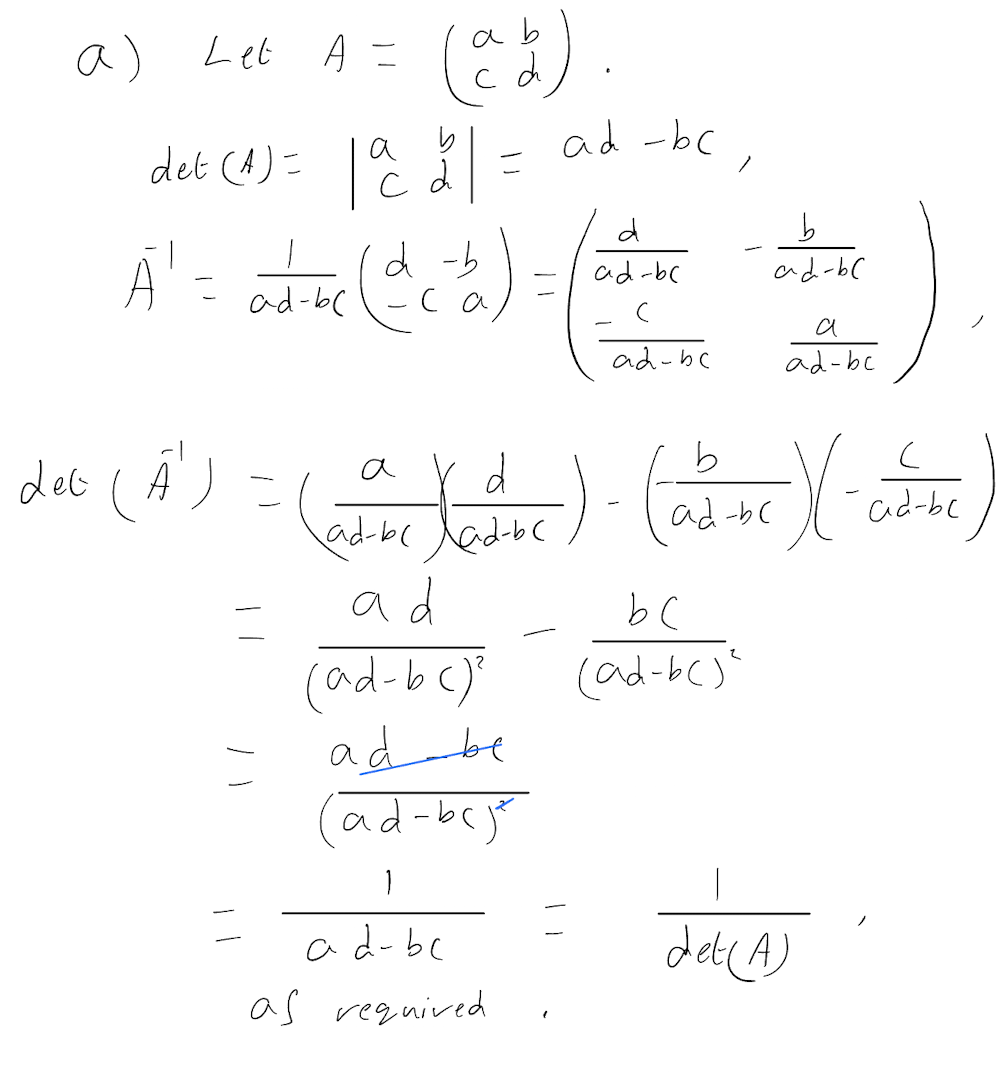 a) Let A = \begin{pmatrix} a & b \\ c & d \end{pmatrix}.
det(A) = \begin{vmatrix} a & b \\ c & d \end{vmatrix} = ad - bc,
A^{-1} = \frac{1}{ad-bc} \begin{pmatrix} d & -b \\ -c & a \end{pmatrix} = \begin{pmatrix} \frac{d}{ad-bc} & -\frac{b}{ad-bc} \\ \frac{-c}{ad-bc} & \frac{a}{ad-bc} \end{pmatrix},
det(A^{-1}) = \left(\frac{a}{ad-bc}\right)\left(\frac{d}{ad-bc}\right) - \left(-\frac{b}{ad-bc}\right)\left(-\frac{c}{ad-bc}\right)
= \frac{ad}{(ad-bc)^2} - \frac{bc}{(ad-bc)^2}
= \frac{ad-bc}{(ad-bc)^2}
= \frac{1}{ad-bc} = \frac{1}{det(A)},
as required.